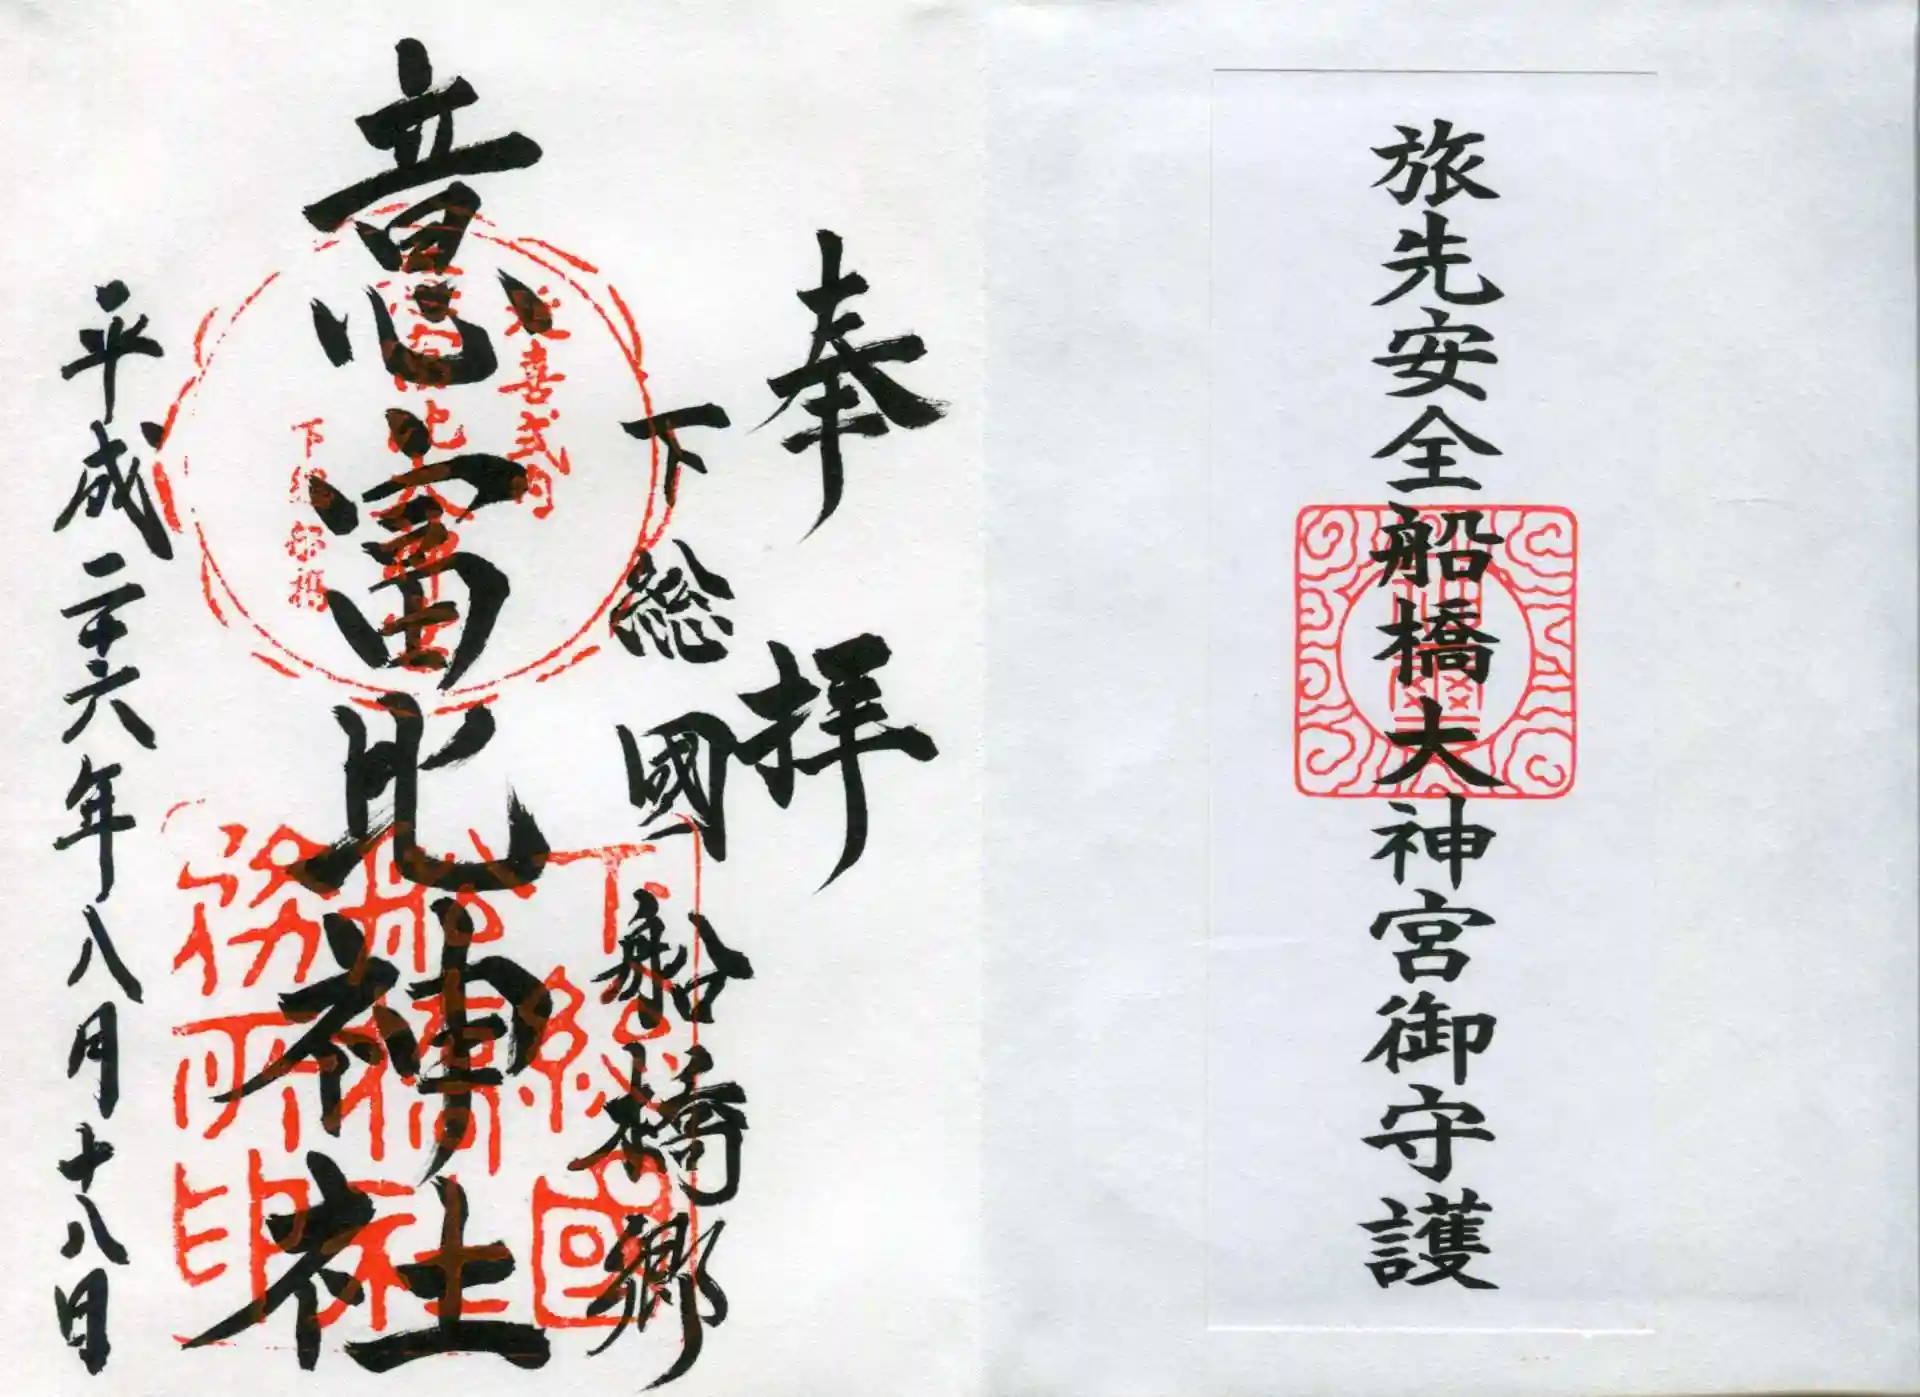 旅先安全船橋大神宮御守護
奉拝
下総國船橋郷
意富比神社
平成二十六年八月十八日
延喜式内
意富比大神宮
下総船橋
下総國
船橋神社
務所印